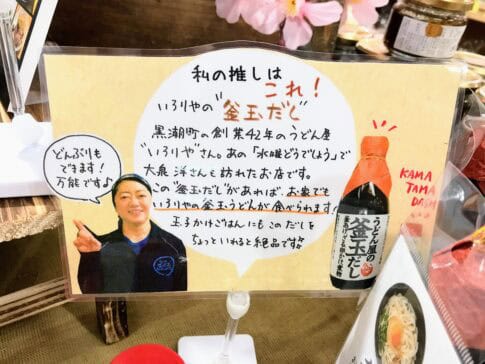 私の推しは
これ！
いろりやの"釜玉だし"
黒潮町の創業42年のうどん屋
"いろりや"さん。あの「水曜どうでしょう」で
大泉洋さんも訪れたお店です。
この"釜玉だし"があれば、お家でも
いろりやの釜玉うどんが食べられます！
玉子かけごはんにもこのだしを
ちょっといれると絶品です
どんぶりも
できます！
万能です♪
KAMA
TAMA
DASHI
うどん屋の
釜玉だし